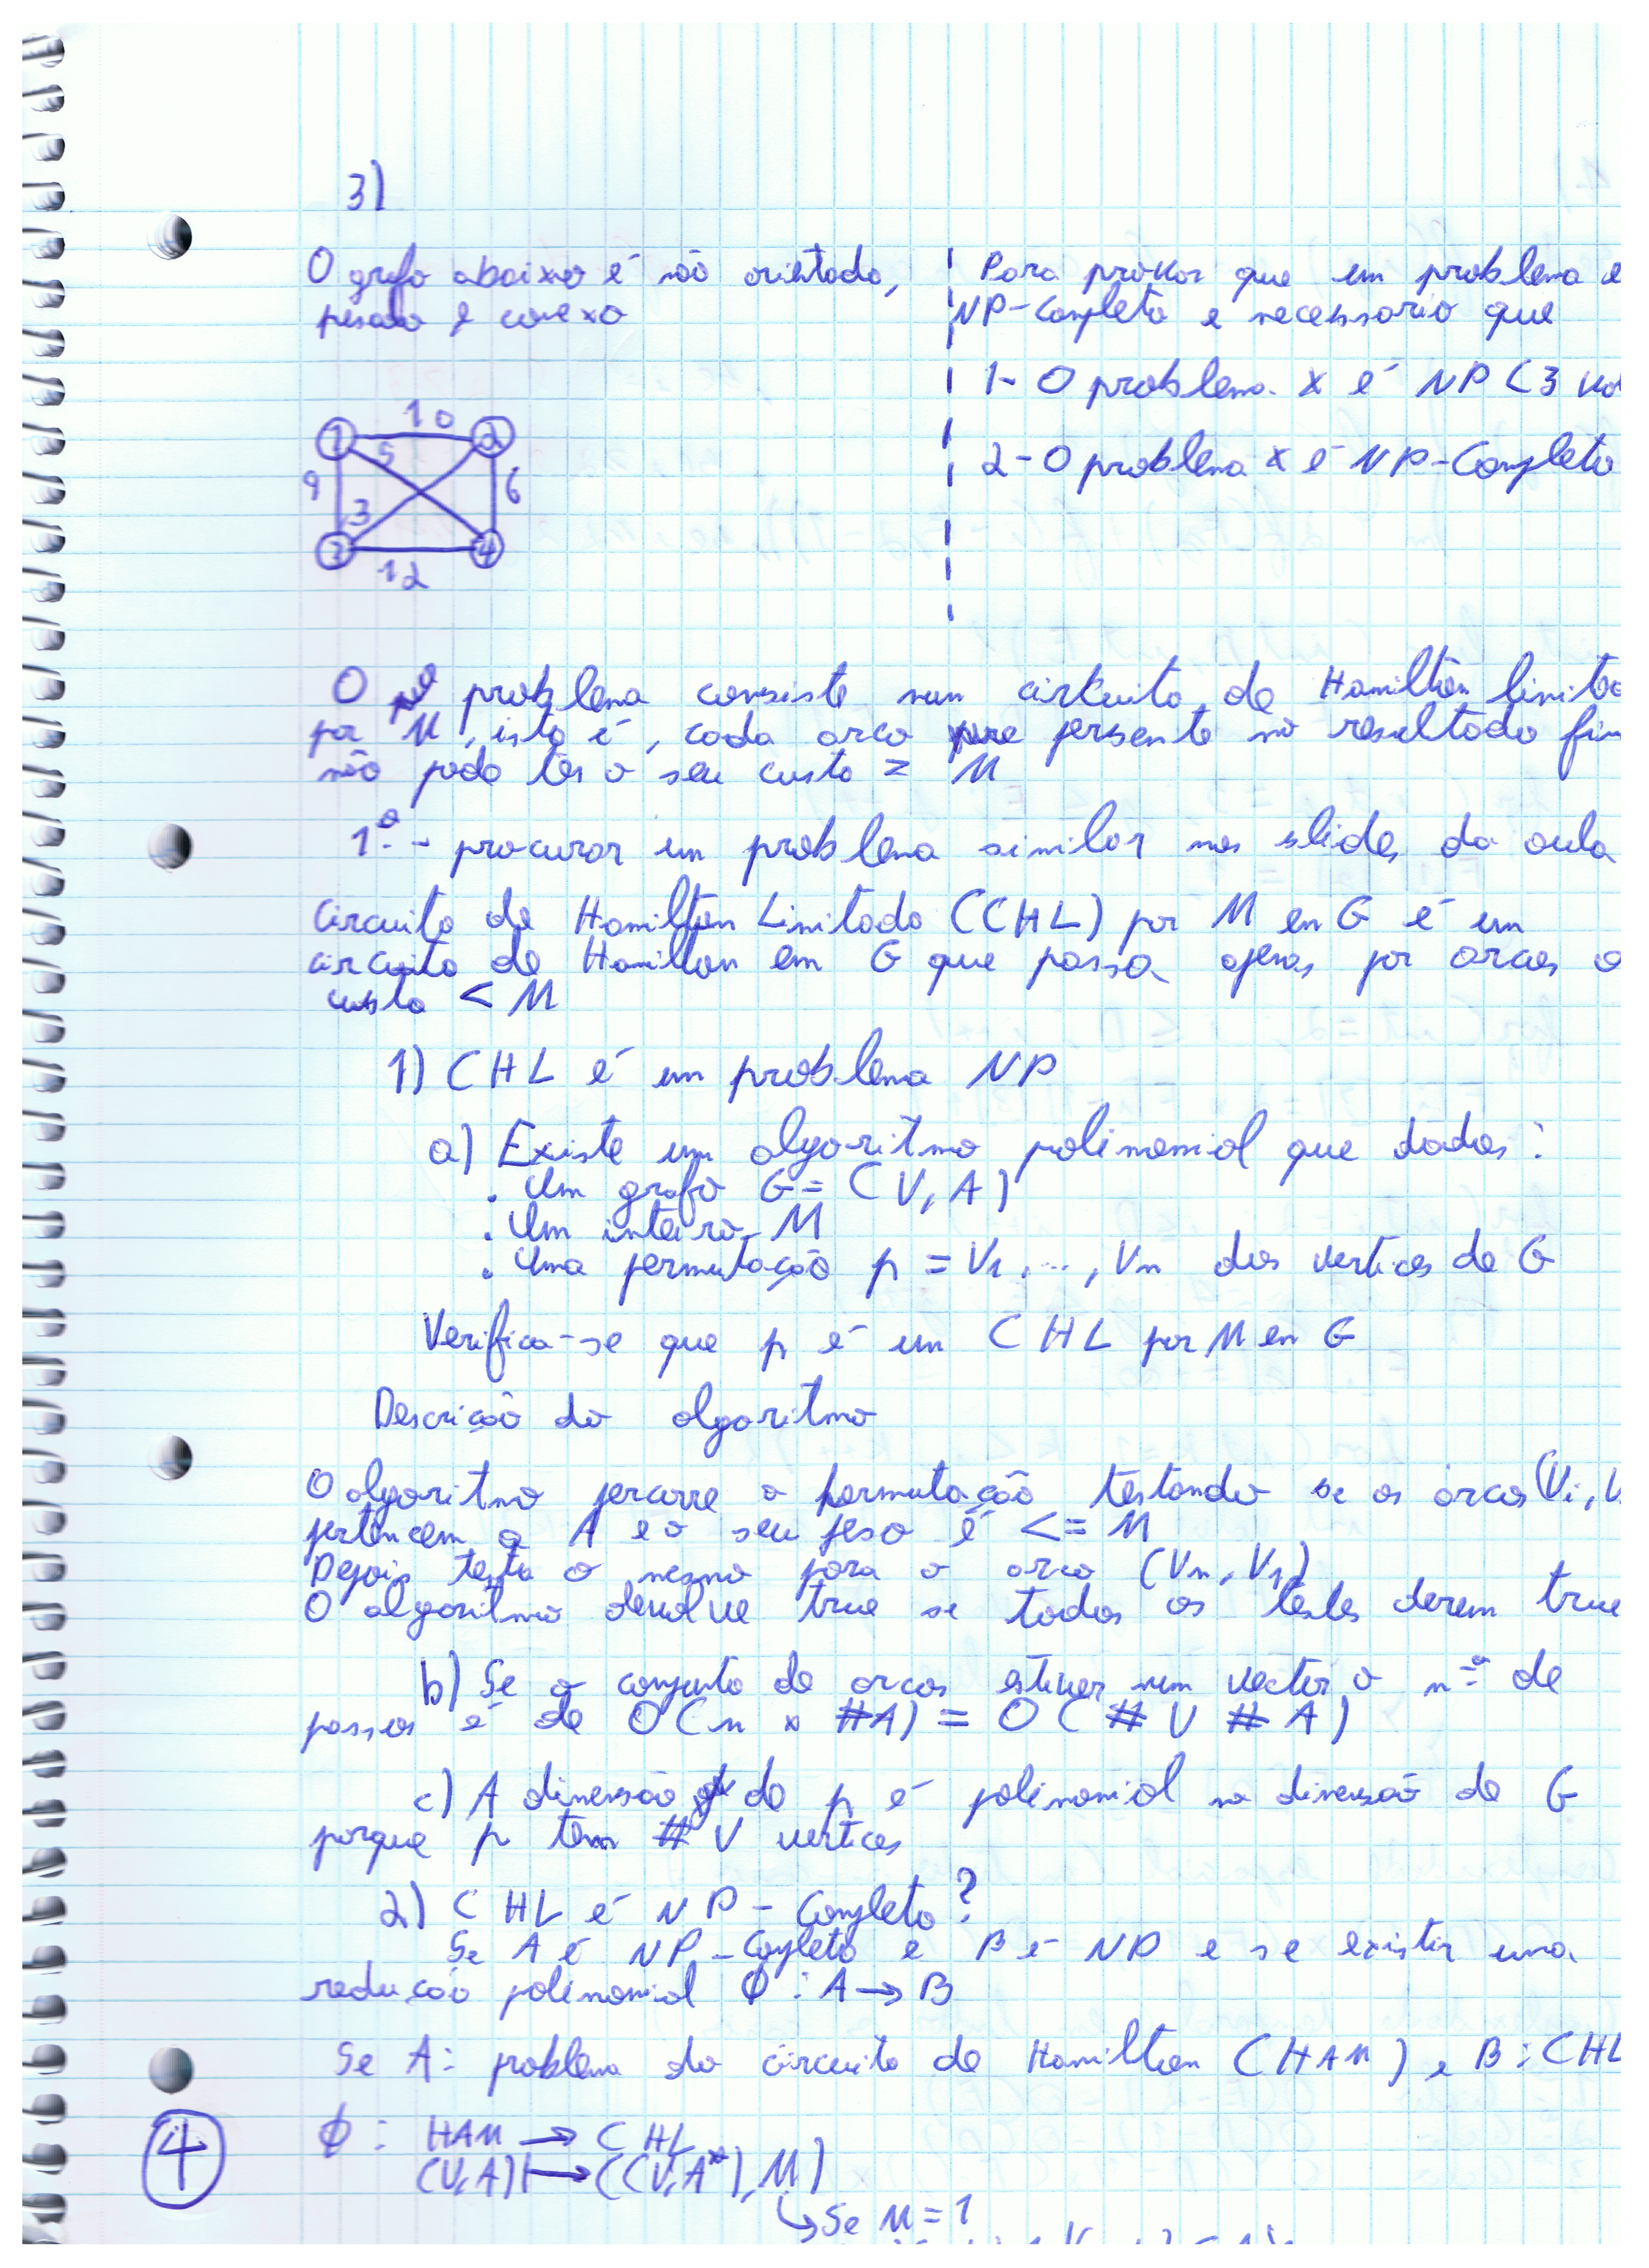 3)
O grafo abaixo é não orientado,
pesado e conexo
Para provar que um problema e
NP-Completo e necessario que
1- O problema x é NP (3
2- O problema x é NP-Completo
10
1 2
5
9 6
3
3 4
12
O problema consiste num circuito de Hamilton limitado
por M, isto é, cada arco persente no resultado fin
não pode ter o seu custo = M
1º - procurar um problema similar nos slides da aula
Circuito de Hamilton Limitado (CHL) por M em G é um
circuito de Hamilton em G que passa apenas por arcos
custo < M
1) CHL é um problema NP
a) Existe um algoritmo polinomial que dados:
. Um grafo G = (V, A)
. Um inteiro M
. Uma permutação p = V1, ..., Vn dos vertices de G
Verifica-se que p é um CHL por M em G
Descrição do algoritmo
O algoritmo percorre a permutação testando se os arcos (Vi, V
pertencem a A e o seu peso é <= M
Depois testa o mesmo para o arco (Vn, V1)
O algoritmo devolve true se todos os testes derem true
b) Se o conjunto de arcos estiver num vector o nº de
passos é de O(n x #A) = O(#V #A)
c) A dimensão de p é polinomial na dimensão de G
porque p tem #V vertices
2) CHL é NP-Completo?
Se A é NP-Copleto e B é NP e se existir uma
redução polinomial Φ : A → B
Se A: problema do circuito de Hamilton (HAM) e B: CHL
4
Φ : HAM → CHL
(V, A) ↦ ((V, A*), M)
↳ Se M = 1